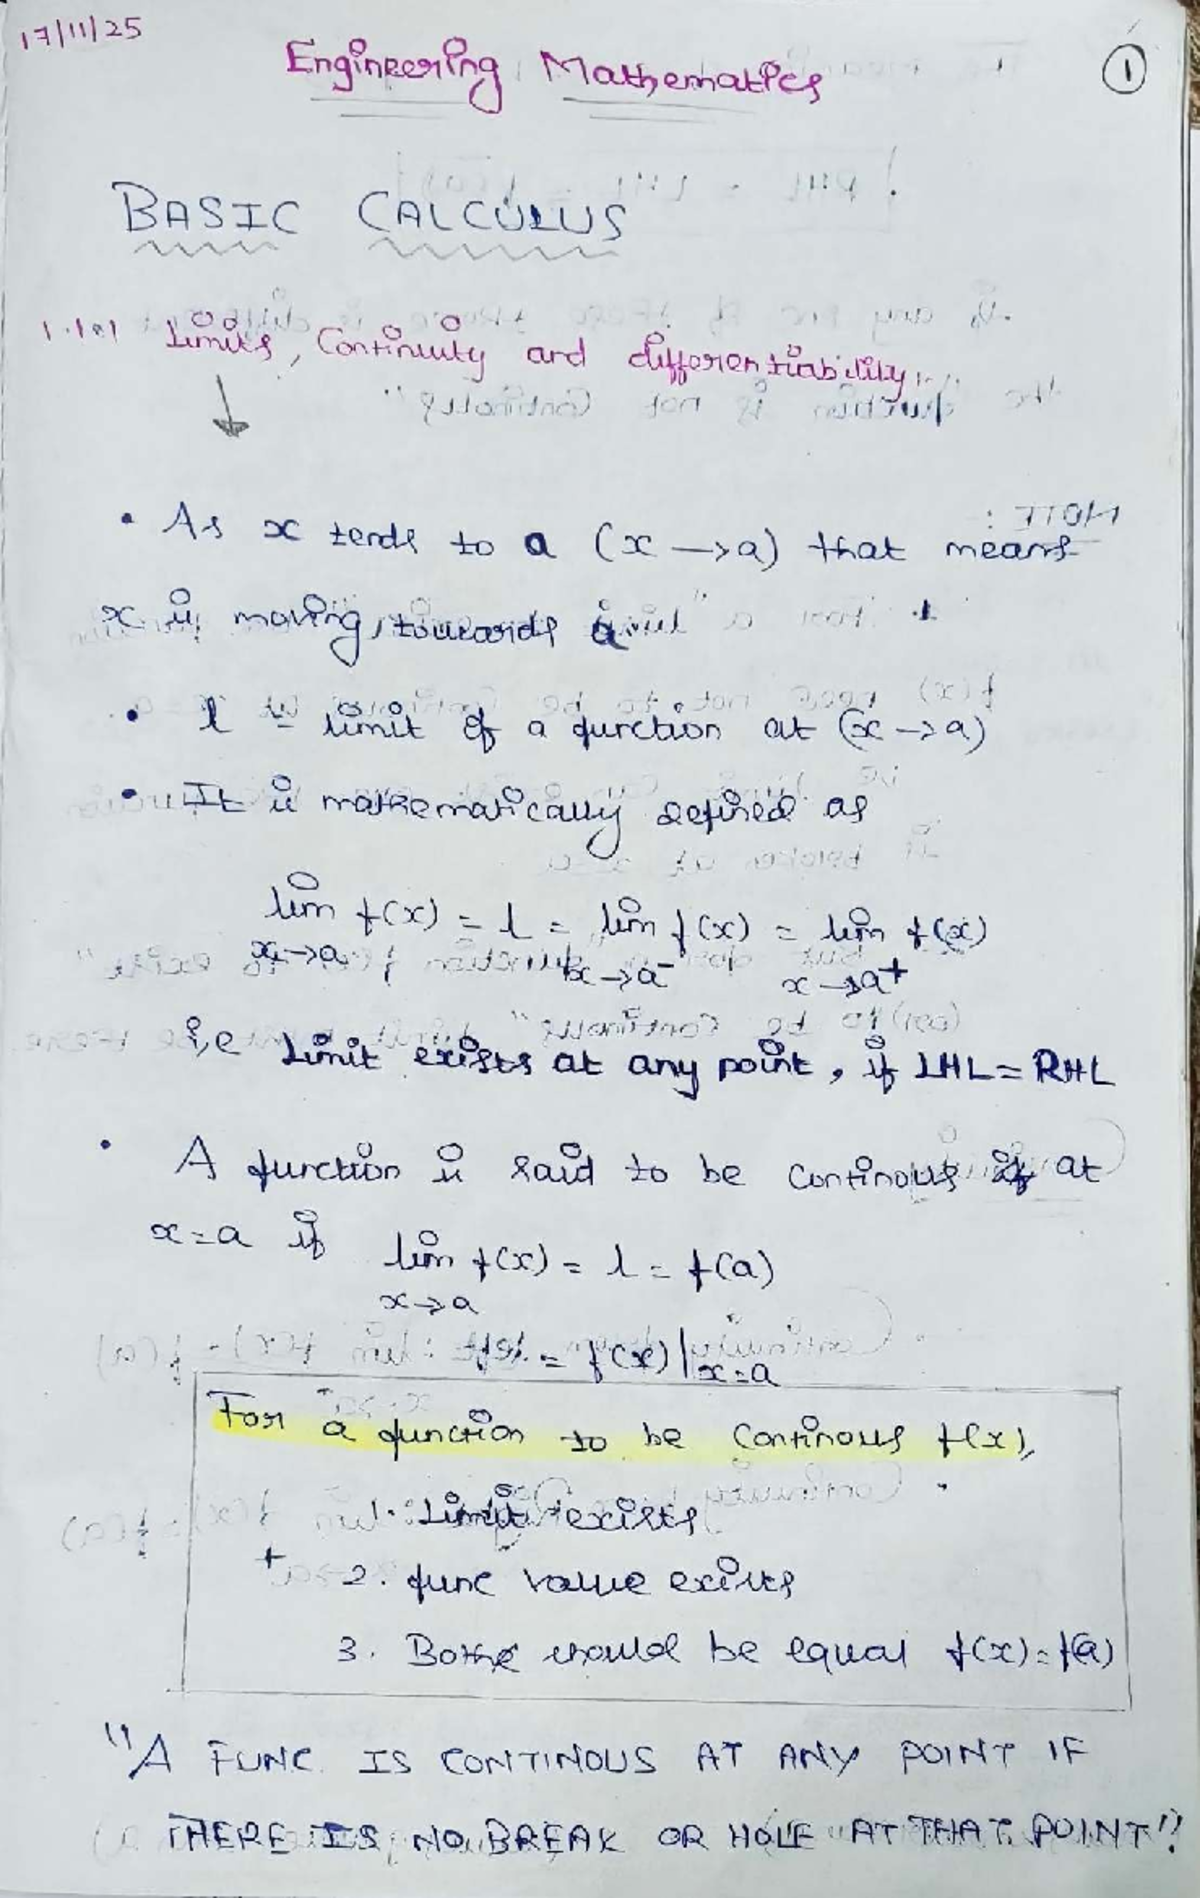 17/11/25
Engineering Mathematics
1
BASIC CALCULUS
1.1.1 Limits, Continuity and differentiability
• As x tends to a (x → a) that means
x is moving towards a
• l = limit of a function at (x → a)
• It is mathematically defined as
lim f(x) = l = lim f(x) = lim f(x)
x→a x→a⁻ x→a⁺
i,e Limit exists at any point, if LHL = RHL
• A function is said to be continous at
x = a if lim f(x) = l = f(a)
x→a
= f(x)|x=a
For a function to be continous f(x),
1. Limit exists
+ 2. func value exists
3. Both should be equal f(x) = f(a)
"A FUNC. IS CONTINOUS AT ANY POINT IF
THERE IS NO BREAK OR HOLE AT THAT POINT"